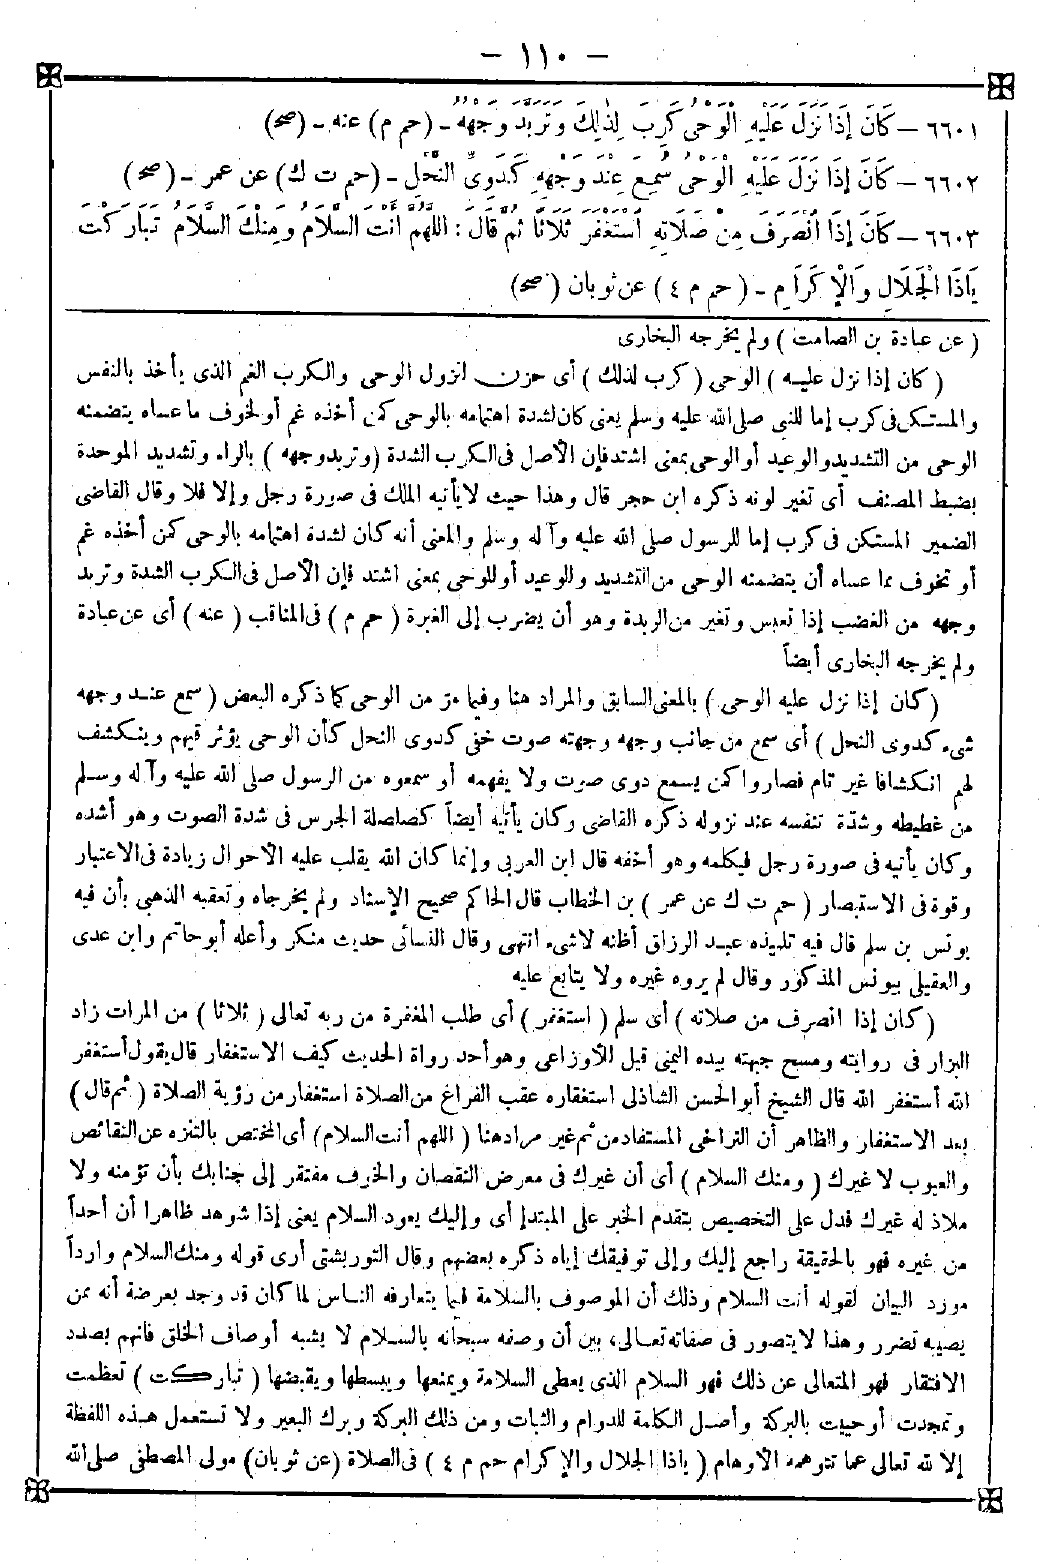 - ١١٠ -
٦٦٠١ - كَانَ إِذَا نَزَلَ عَلَيْهِ الْوَحْىُ كُرِبَ لِذٰلِكَ وَتَرَبَّدَ وَجْهُهُ - (حم م) عنه - (صح)
٦٦٠٢ - كَانَ إِذَا نَزَلَ عَلَيْهِ الْوَحْىُ سُمِعَ عِنْدَ وَجْهِهِ كَدَوِىِّ النَّحْلِ - (حم ت ك) عن عمر - (صح)
٦٦٠٣ - كَانَ إِذَا انْصَرَفَ مِنْ صَلَاتِهِ اسْتَغْفَرَ ثَلَاثًا ثُمَّ قَالَ : اللّٰهُمَّ أَنْتَ السَّلَامُ وَمِنْكَ السَّلَامُ تَبَارَكْتَ
يَاذَا الْجَلَالِ وَالْإِكْرَامِ - (حم م ٤) عن ثوبان (صح)
(عن عبادة بن الصامت) ولم يخرجه البخارى
(كان إذا نزل عليه) الوحى (كرب لذلك) أى حزن لنزول الوحى والكرب الغم الذى يأخذ بالنفس
والمستكن فى كرب إما للنبى صلى الله عليه وسلم يعنى كان لشدة اهتمامه بالوحى كمن أخذه غم أو لخوف ما عساه يتضمنه
الوحى من التشديد والوعيد أو الوحى بمعنى اشتد فإن الأصل فى الكرب الشدة (وتربد وجهه) بالراء وتشديد الموحدة
بضبط المصنف أى تغير لونه ذكره ابن حجر قال وهذا حيث لا يأتيه الملك فى صورة رجل وإلا فلا وقال القاضى
الضمير المستكن فى كرب إما للرسول صلى الله عليه وآله وسلم والمعنى أنه كان لشدة اهتمامه بالوحى كمن أخذه غم
أو تخوف مما عساه أن يتضمنه الوحى من التشديد والوعيد أو للوحى بمعنى اشتد فإن الأصل فى الكرب الشدة وتربد
وجهه من الغضب إذا تعبس وتغير من الربدة وهو أن يضرب إلى الغبرة (حم م) فى المناقب (عنه) أى عن عبادة
ولم يخرجه البخارى أيضاً
(كان إذا نزل عليه الوحى) بالمعنى السابق والمراد هنا وفيما مر من الوحى كما ذكره البعض (سمع عند وجهه
شىء كدوى النحل) أى سمع من جانب وجهه وجهته صوت خفى كدوى النحل كأن الوحى يؤثر فيهم وينكشف
لهم انكشافا غير تام فصاروا كمن يسمع دوى صوت ولا يفهمه أو سمعوه من الرسول صلى الله عليه وآله وسلم
من غطيطه وشدة تنفسه عند نزوله ذكره القاضى وكان يأتيه أيضاً كصلصلة الجرس فى شدة الصوت وهو أشده
وكان يأتيه فى صورة رجل فيكلمه وهو أخفه قال ابن العربى وإنما كان الله يقلب عليه الأحوال زيادة فى الاعتبار
وقوة فى الاستبصار (حم ت ك عن عمر) بن الخطاب قال الحاكم صحيح الإسناد ولم يخرجاه وتعقبه الذهبى بأن فيه
يونس بن سلم قال فيه تلميذه عبد الرزاق أظنه لاشىء انتهى وقال النسائى حديث منكر وأعله أبو حاتم وابن عدى
والعقيلى بيونس المذكور وقال لم يروه غيره ولا يتابع عليه
(كان إذا انصرف من صلاته) أى سلم (استغفر) أى طلب المغفرة من ربه تعالى (ثلاثا) من المرات زاد
البزار فى روايته ومسح جبهته بيده اليمنى قيل للأوزاعى وهو أحد رواة الحديث كيف الاستغفار قال يقول أستغفر
الله أستغفر الله قال الشيخ أبو الحسن الشاذلى استغفاره عقب الفراغ من الصلاة استغفار من رؤية الصلاة (ثم قال)
بعد الاستغفار والظاهر أن التراخى المستفاد من ثم غير مراد هنا (اللهم أنت السلام) أى المختص بالتنزه عن النقائص
والعيوب لا غيرك (ومنك السلام) أى أن غيرك فى معرض النقصان والخوف مفتقر إلى جنابك بأن تؤمنه ولا
ملاذ له غيرك فدل على التخصيص بتقدم الخبر على المبتدإ أى وإليك يعود السلام يعنى إذا شوهد ظاهرا أن أحداً
من غيره فهو بالحقيقة راجع إليك وإلى توفيقك إياه ذكره بعضهم وقال التوربشتى أرى قوله ومنك السلام وارداً
مورد البيان لقوله أنت السلام وذلك أن الموصوف بالسلامة فيما يتعارفه الناس لما كان قد وجد بعرضة أنه ممن
يصيبه تضرر وهذا لا يتصور فى صفاته تعالى، بين أن وصفه سبحانه بالسلام لا يشبه أوصاف الخلق فانهم بصدد
الافتقار فهو المتعالى عن ذلك فهو السلام الذى يعطى السلامة ويمنعها ويبسطها ويقبضها (تباركت) تعظمت
وتمجدت أو حييت بالبركة وأصل الكلمة للدوام والثبات ومن ذلك البركة وبرك البعير ولا تستعمل هذه اللفظة
إلا لله تعالى عما تتوهمه الأوهام (ياذا الجلال والإكرام حم م ٤) فى الصلاة (عن ثوبان) مولى المصطفى صلى الله